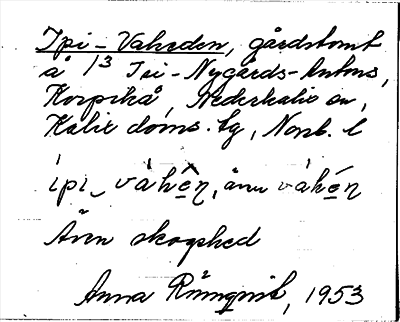 Ipi-Vaheden, gårdstomt
å 1/3 Tei-Nygårds-Antons,
Korpikå, Nederkalix sn,
Kalix doms. tg, Norrb. l
ìpi_vàhên, även vàhén
Även skogshed
Anna Rönnqvist, 1953